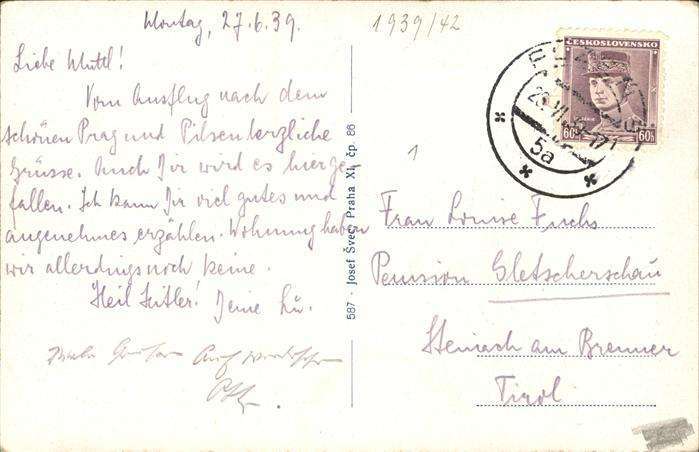 Montag, 27.6.39.
1939/42
Liebe Muttl!
Vom Ausflug nach dem
schönen Prag und Pilsen herzliche
Grüsse. Auch Dir wird es hier ge
fallen. Ich kann Dir viel gutes und
angenehmes erzählen. Wohnung haben
wir allerdings noch keine.
Heil Hitler! Deine Lu.
587 · Josef Švec, Praha XI., čp. 86
ČESKOSLOVENSKO
60h 60h
5a
1
Frau Louise Fuchs
Pension Gletscherschau
Steinach am Brenner
Tirol